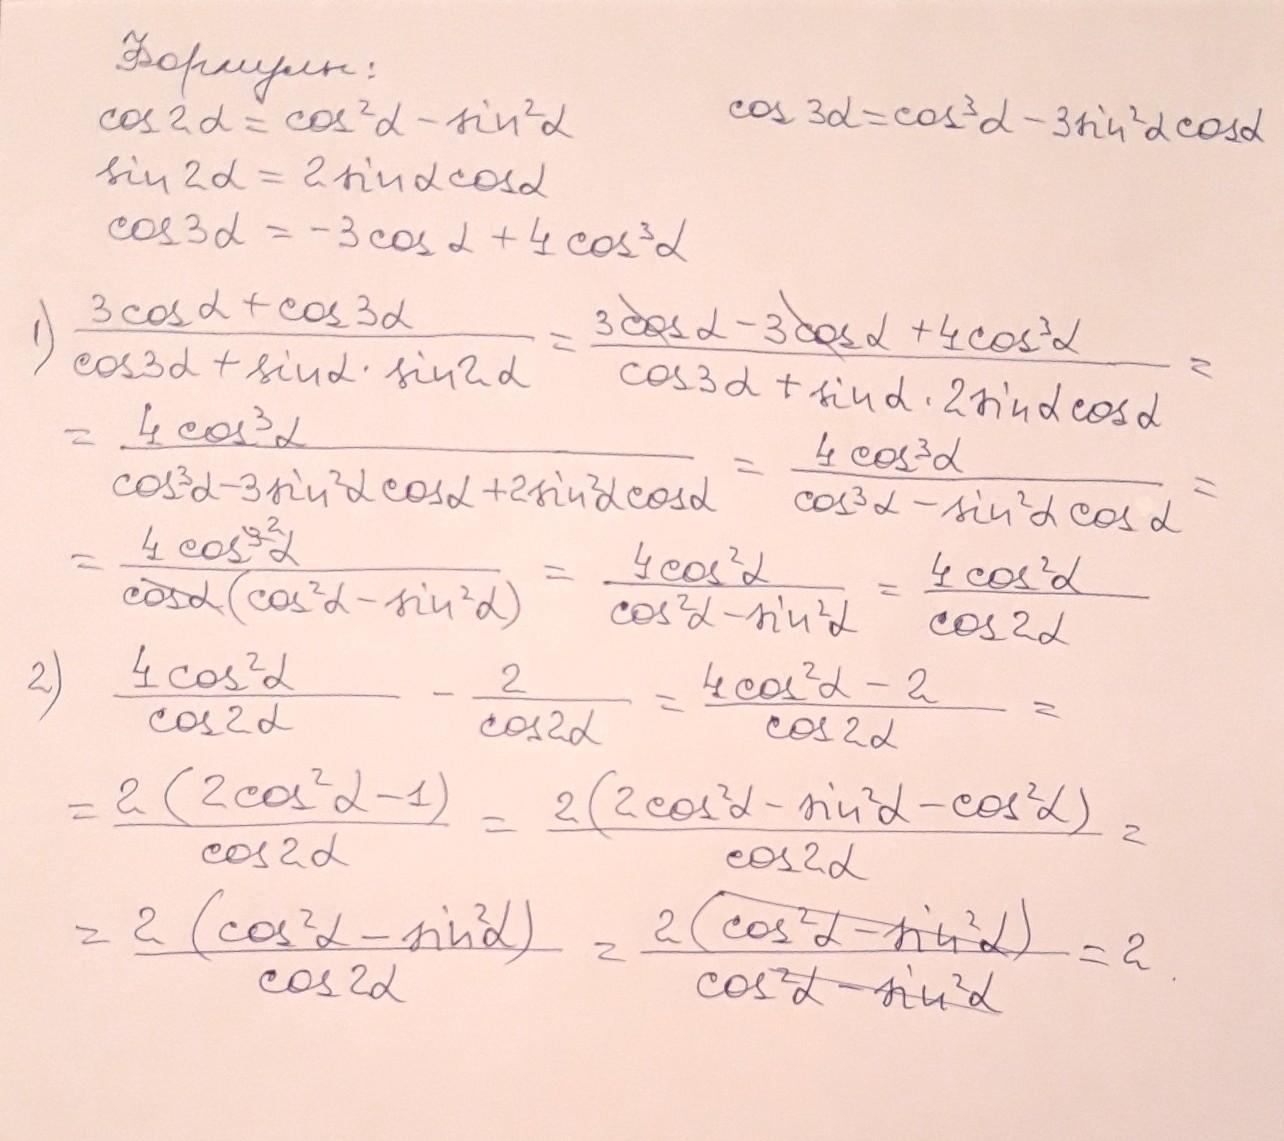 Формулы:
cos2α = cos²α - sin²α
cos 3α = cos³α - 3sin²α cosα
sin2α = 2sinα cosα
cos3α = -3cosα + 4cos³α
1) (3cosα + cos3α)/(cos3α + sinα · sin2α) = (3cosα - 3cosα + 4cos³α)/(cos3α + sinα · 2sinα cosα) =
= 4cos³α/(cos³α - 3sin²α cosα + 2sin²α cosα) = 4cos³α/(cos³α - sin²α cosα) =
= 4cos³²α/(cosα(cos²α - sin²α)) = 4cos²α/(cos²α - sin²α) = 4cos²α/cos2α
2) 4cos²α/cos2α - 2/cos2α = (4cos²α - 2)/cos2α =
= 2(2cos²α - 1)/cos2α = 2(2cos²α - sin²α - cos²α)/cos2α =
= 2(cos²α - sin²α)/cos2α = 2(cos²α - sin²α)/(cos²α - sin²α) = 2.